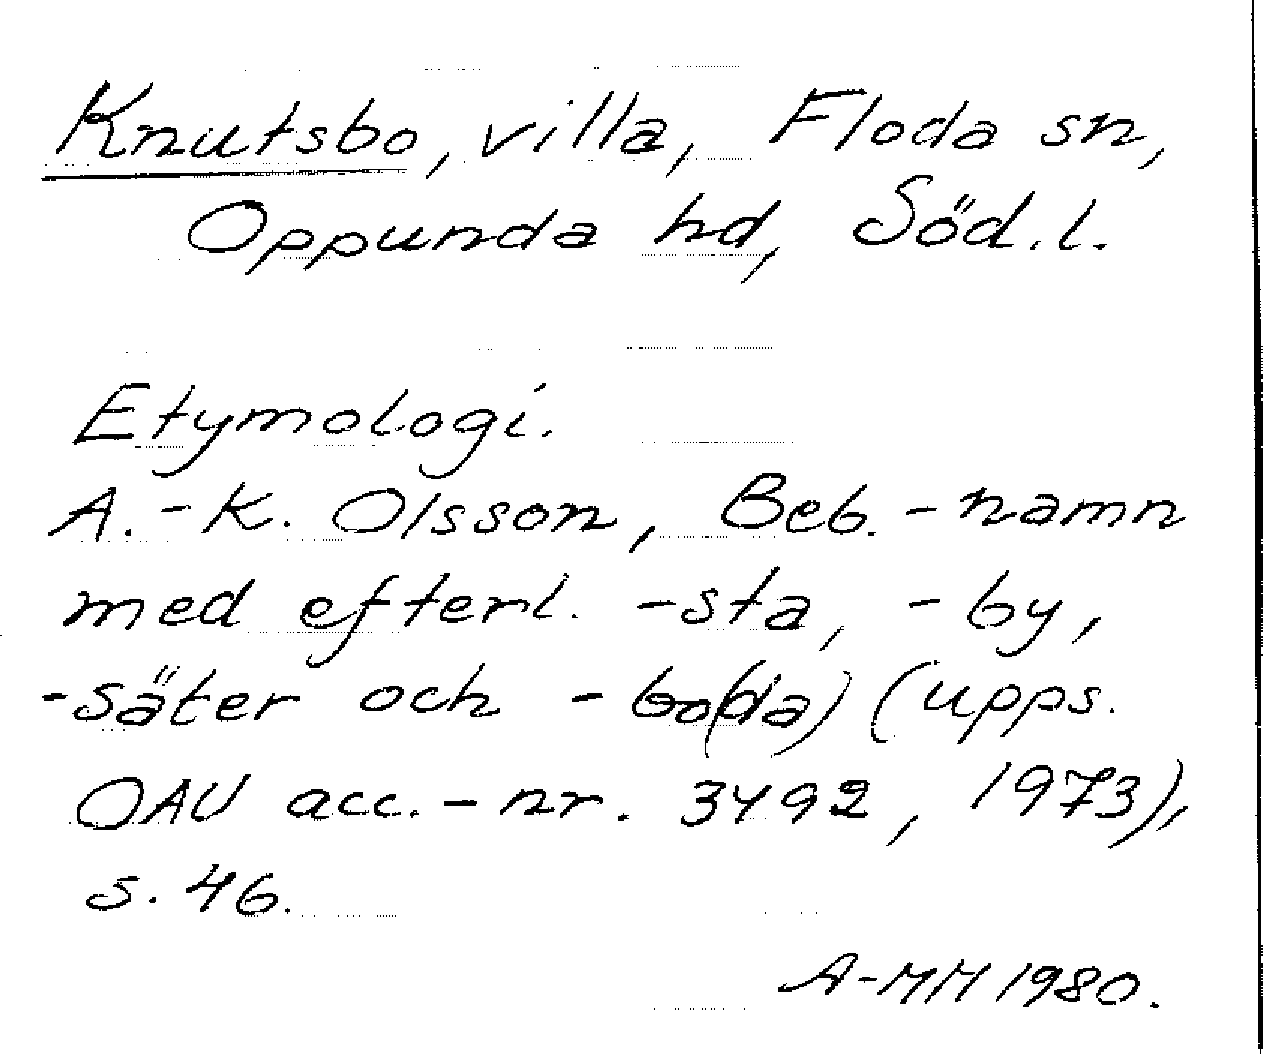 Knutsbo, villa, Floda sn,
Oppunda hd, Söd.l.
Etymologi.
A.-K. Olsson, Beb.-namn
med efterl. -sta, -by,
-säter och -bo(da) (upps.
OAU acc.-nr. 3492, 1973),
s. 46.
A-MH 1980.